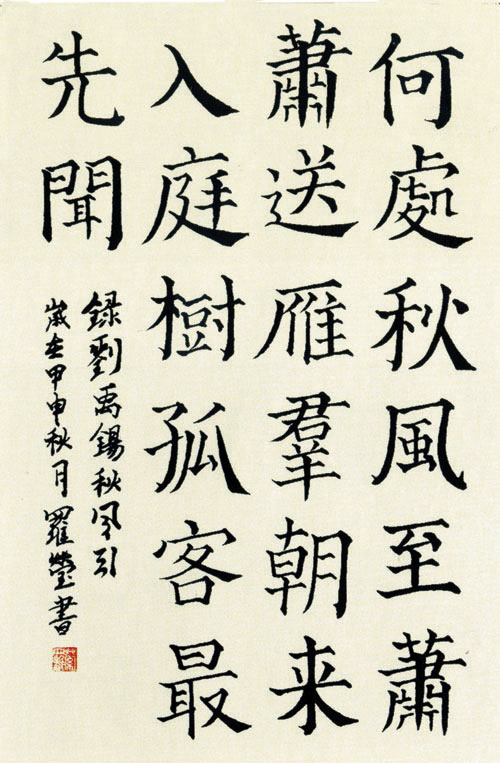 何處秋風至蕭
蕭送雁羣朝来
入庭樹孤客最
先聞
録劉禹錫秋風引
歲在甲申秋月羅瑩書